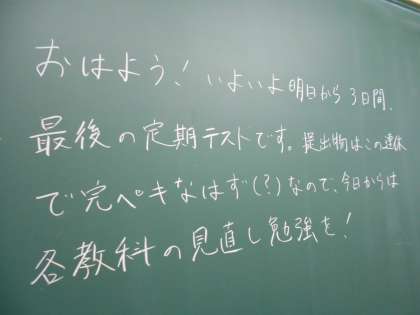 おはよう! いよいよ明日から3日間、
最後の定期テストです。提出物はこの連休
で完ペキなはず(?)なので、今日からは
各教科の見直し勉強を!